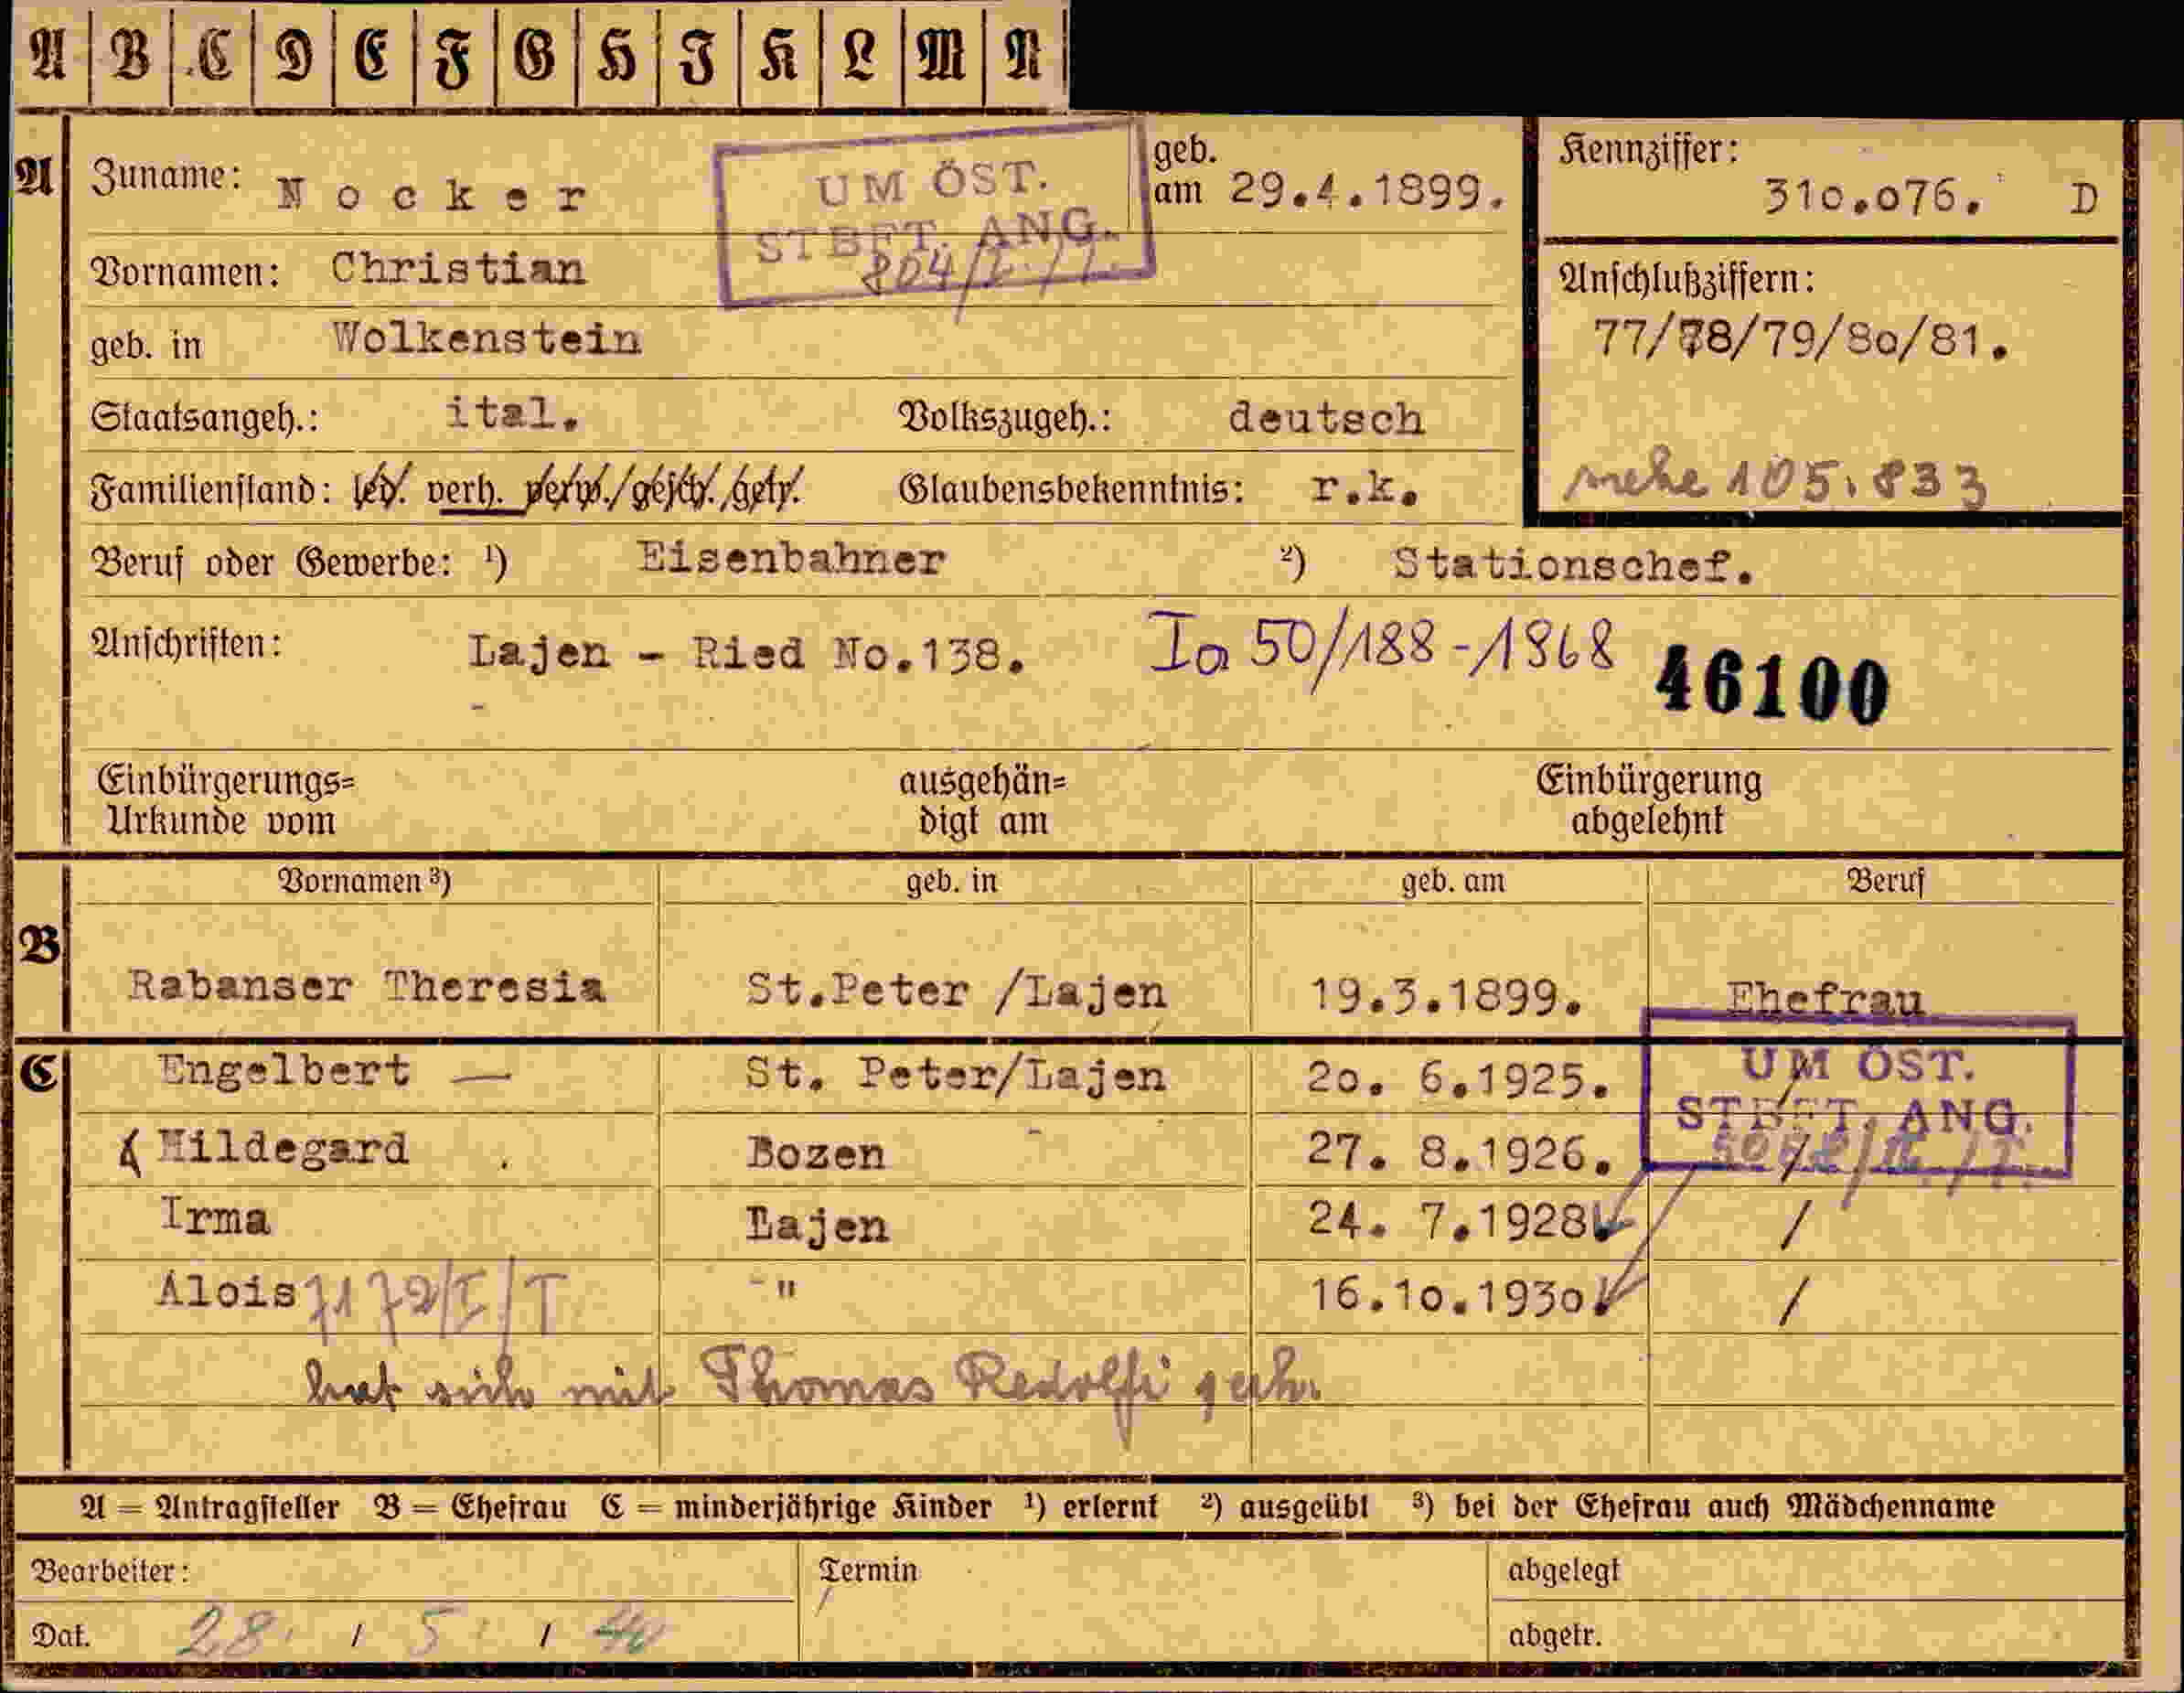 A B C D E F G H J K L M N
A Zuname: Nocker
UM ÖST.
STBFT. ANG.
geb. am 29.4.1899.
Kennziffer:
310.076. D
Vornamen: Christian
Anschlußziffern:
77/78/79/80/81.
geb. in Wolkenstein
Staatsangeh.: ital. Volkszugeh.: deutsch
Familienstand: led. verh. verw./gesch./getr. Glaubensbekenntnis: r.k.
105.833
Beruf oder Gewerbe: ¹) Eisenbahner ²) Stationschef.
Anschriften: Lajen - Ried No.138. Ia 50/188-1868 46100
Einbürgerungs= ausgehän= Einbürgerung
Urkunde vom digt am abgelehnt
Vornamen ³) geb. in geb. am Beruf
B Rabanser Theresia St.Peter /Lajen 19.3.1899. Ehefrau
C Engelbert — St. Peter/Lajen 20. 6.1925. /
UM ÖST.
STBFT. ANG.
Hildegard Bozen 27. 8.1926. /
Irma Lajen 24. 7.1928 /
Alois 7172/I/T " 16.10.1930 /
hat sich mit Thomas Redolfi
A = Antragsteller B = Ehefrau C = minderjährige Kinder ¹) erlernt ²) ausgeübt ³) bei der Ehefrau auch Mädchenname
Bearbeiter: Termin abgelegt
Dat. 28. / 5. / 40 abgetr.